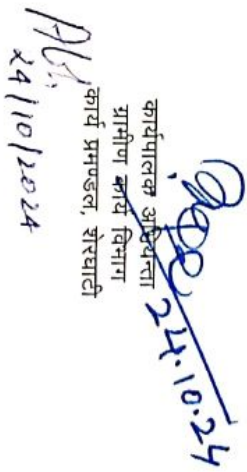 24.10.24
कार्यपालक अभियन्ता
ग्रामीण कार्य विभाग
कार्य प्रमण्डल, शेरघाटी
24/10/2024